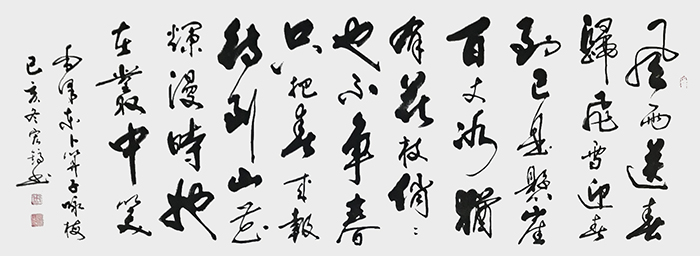 風雨送春
歸飛雪迎春
到已是懸崖
百丈冰猶
有花枝俏〻
也不争春
只把春来報
待到山花
爛漫時她
在叢中笑
毛澤东卜算子咏梅
己亥冬